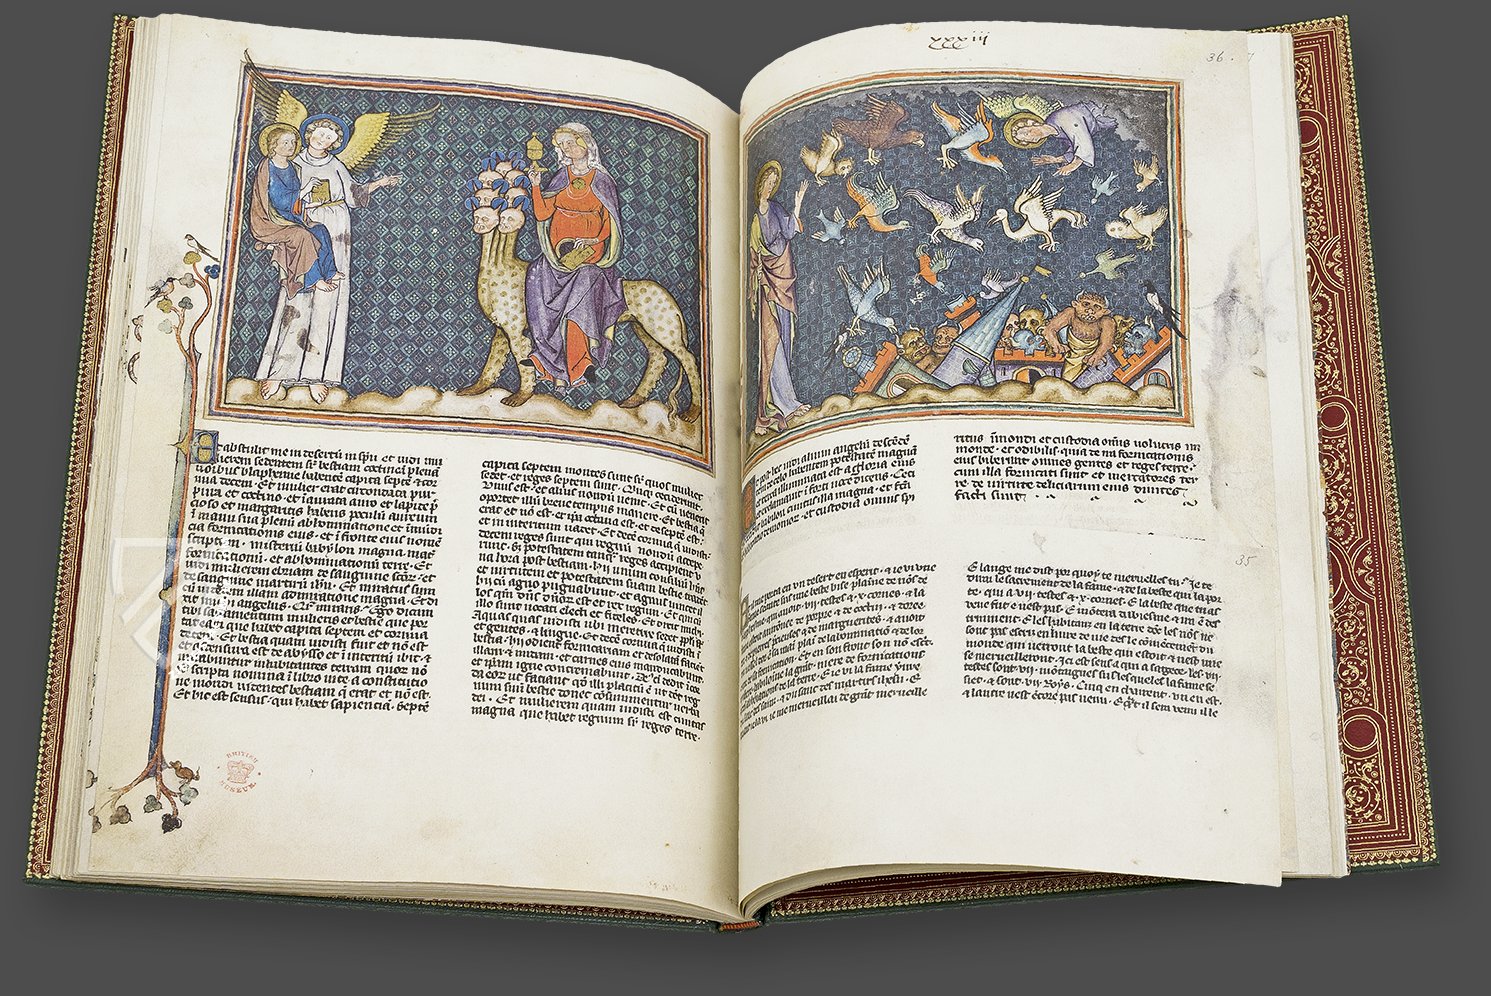 abstulit me in desertū in spū et vidi mu
lierem sedentem sr̄ bestiam coccineā plenā
nominibus blasphemie habentē capita septē et cor
nua decem. Et mulier erat circundata pur
pura et coccino et inaurata auro et lapide p̄
cioso et margaritis habens poculū aureum
in manu sua plenū abhominatione et inmun
dicia fornicationis eius et ī fronte eius nomē
scriptum misteriū babylon magna mater
fornicationū et abhominationū terre. Et
vidi mulierem ebriam de sanguine sctōr et
de sanguine martirū ihū. Et miratus sum
cum vidissem illam admiratione magna. Et di
xit michi angelus. Quare miraris. Ego dicam
tibi sacramentum mulieris et bestie que por
tat eam que habet capita septem et cornua
decem. Et bestia quam vidisti fuit et nō est
et ascensura est de abysso et ī interitū ibit et
mirabuntur inhabitantes terram quor nō
scripta nomina ī libro vite a constitutiō
ne mundi videntes bestiam q̄ erat et nō est.
Et hic est sensus qui habet sapienciā. Septē
capita septem montes sunt sr̄ quos mulier
sedet et reges septem sunt. Quinqz ceciderunt
unus est et alius nondū venit. Et cū venerit
oportet illū breve tempus manere. Et bestia q̄
erat et nō est et ip̄a octava est et de septē est
et in interitum vadet. Et decē cornua q̄ vidisti
decem reges sunt qui regnū nondū accepe
runt. Sz potestatem tanq̄ reges accipient v
na hora post bestiam. hii unum consiliū hn̄t
et virtutem et potestatem suam bestie tradēt
hii cū agno pugnabunt et agnus vincet il
los qm̄ dn̄s dn̄or est et rex regum. Et qui cū
illo sunt vocati electi et fideles. Et dixit michi
Aquas quas vidisti ubi meretrix sedet ppl̄i sūt
et gentes et lingue. Et decē cornua q̄ vidisti ī
bestia hii odient fornicariam et desolatā faciēt
illam et nudam et carnes eius manducabunt
et ip̄am igne concremabunt. De' eī dedit ī cor
da eor ut faciant qd̄ illi placitū ē ut det reg
num suū bestie donec cōsummentur verba
dei. Et mulierem quam vidisti est civitas
magna que habet regnum sr̄ reges terre.
BRITISH
MUSEUM
xxxiii
36.
post hec vidi alium angelū descēdē
tem de celo habentem potestatē magnā
et terra illuminata est a gloria eius
et exclamavit ī forti voce dicens. Ceci
dit babilon civitas illa magna et facta
est habitatio demonior et custodia omnis spi
ritus īmondi et custodia omīs volucris im
monde et odibilis quia de ira fornicationis
eius biberunt omnes gentes et reges terre
cum illa fornicati sunt et mercatores ter
re de virtute deliciarum eius divites
facti sunt.
35
me porta en un desert en esperit et ie vi une
feme seant sus une beste bise plaine de nōs de
blasphemie qui avoit vii testes et x cornes et la
feme estoit avironee de porpre et de cochin et doree
de pierres precieuses et de marguerites et avoit
en sa mai plai de labominatiō et de lor
dure de sa fornication. Et en son front son nō escr̄t
babyloine la grāt mere de fornications
et abhominations de la terre. E ie vi la fame yvre
du sanc des sains et du sanc des martirs ihesū. E
quant ie la vi ie me merveillai de grāt merveille
E langes me dist por quoy te merveilles tu. Je te
diray le sacrement de la fame et de la beste qui la por
te qui a vii testes et x cornes. E la beste que tu as
veue fut et nest pas. E mōtera dabysme et ira ē des
truiment. E les habitans en la terre dōt les nōs ne
sont pas escris en livre de vie des le cōmēcemēt du
monde qui verront la beste qui estoit et nest mie
se merveilleront et ici est sens a qui a sagece. les vii
testes sont vii mōtaignes sus lesqueles la fame se
siet et sont vii Roys. Cinq en chairent vii en est
et lautre nest encore pas venu. E quāt il sera venu il le